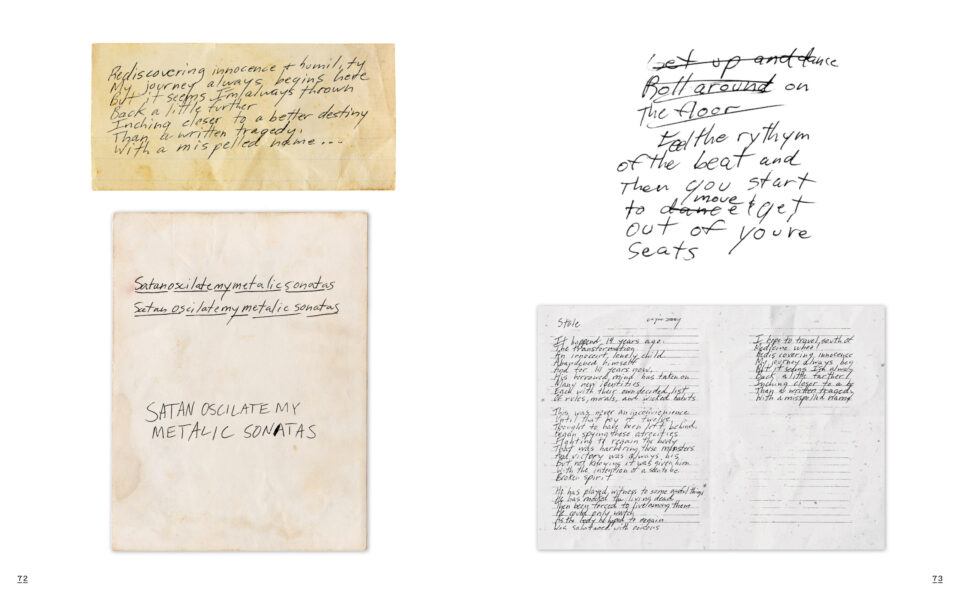 Rediscovering innocence + humility
My journey always begins here
But it seems I'm always thrown
Back a little further
Inching closer to a better destiny
Than a written tragedy.
With a mispelled name...
Satanoscilatemymetalic sonatas
Satan oscilatemymetalic sonatas
SATAN OSCILATE MY
METALIC SONATAS
72
Get up and dance
Roll around on
The floor
Feel the rythym
of the beat and
Then you start
move
to dance & get
out of youre
seats
Stole
It happend 19 years ago.
The transformation
An innocent, lonely child
Abandoned himself
And for 19 years now,
His borrowed mind has taken on
Many new identities
Each with their own decided list
Of rules, morals, and wicked habits
This was never an inconvienience
Until that boy of twelve,
Thought to have been left behind.
Began spying these atrocities
Fighting to regain the body
That was harboring these monsters
And victory was always his,
But not knowing it was given him
With the intention of a
Broken spirit
He has played witness to some awful things
He has the living dead
Then been forced to live among them
He could only watch
As the body he hoped to regain
Was sabotaged with poisons
I hope to travel, south of
Medicine wheel
Rediscovering innocence
My journey always beg
But it seems I'm always
Back a little farther
Inching closer to a be
Than a written tragedy,
With a misspelled name
73